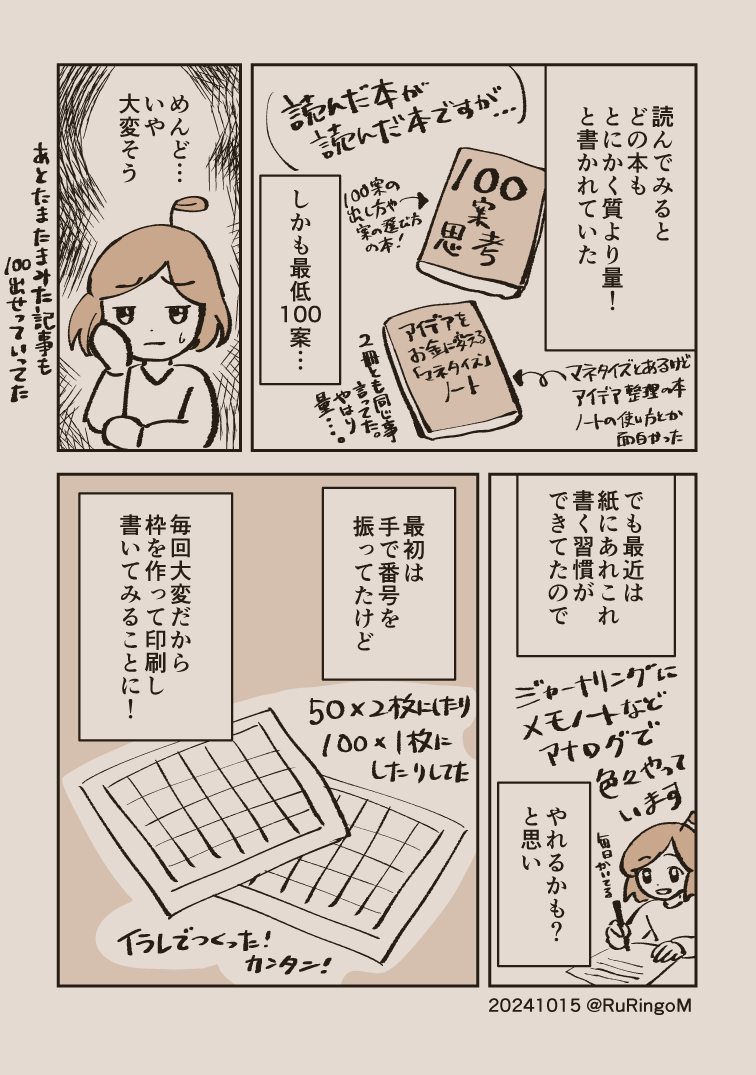 読んでみると
どの本も
とにかく質より量！
と書かれていた
読んだ本が
読んだ本ですが…
100
案
思考
100案の
出し方や
案の選び方
の本！
しかも最低
100案…
アイデアを
お金に変える
「マネタイズ」
ノート
マネタイズとあるけど
アイデア整理の本
ノートの使い方とか
面白かった
2冊とも同じ事
言ってた。
やはり
量…。
めんど…
いや
大変そう
あとたまたまみた記事も
100出せっていってた
でも最近は
紙にあれこれ
書く習慣が
できてたので
ジャーナリングに
メモノートなど
アナログで
色々やって
います
やれるかも？
と思い
毎日かいてる
最初は
手で番号を
振ってたけど
50×2枚にしたり
100×1枚に
したりしてた
毎回大変だから
枠を作って印刷し
書いてみることに！
イラレでつくった！
カンタン！
20241015 @RuRingoM